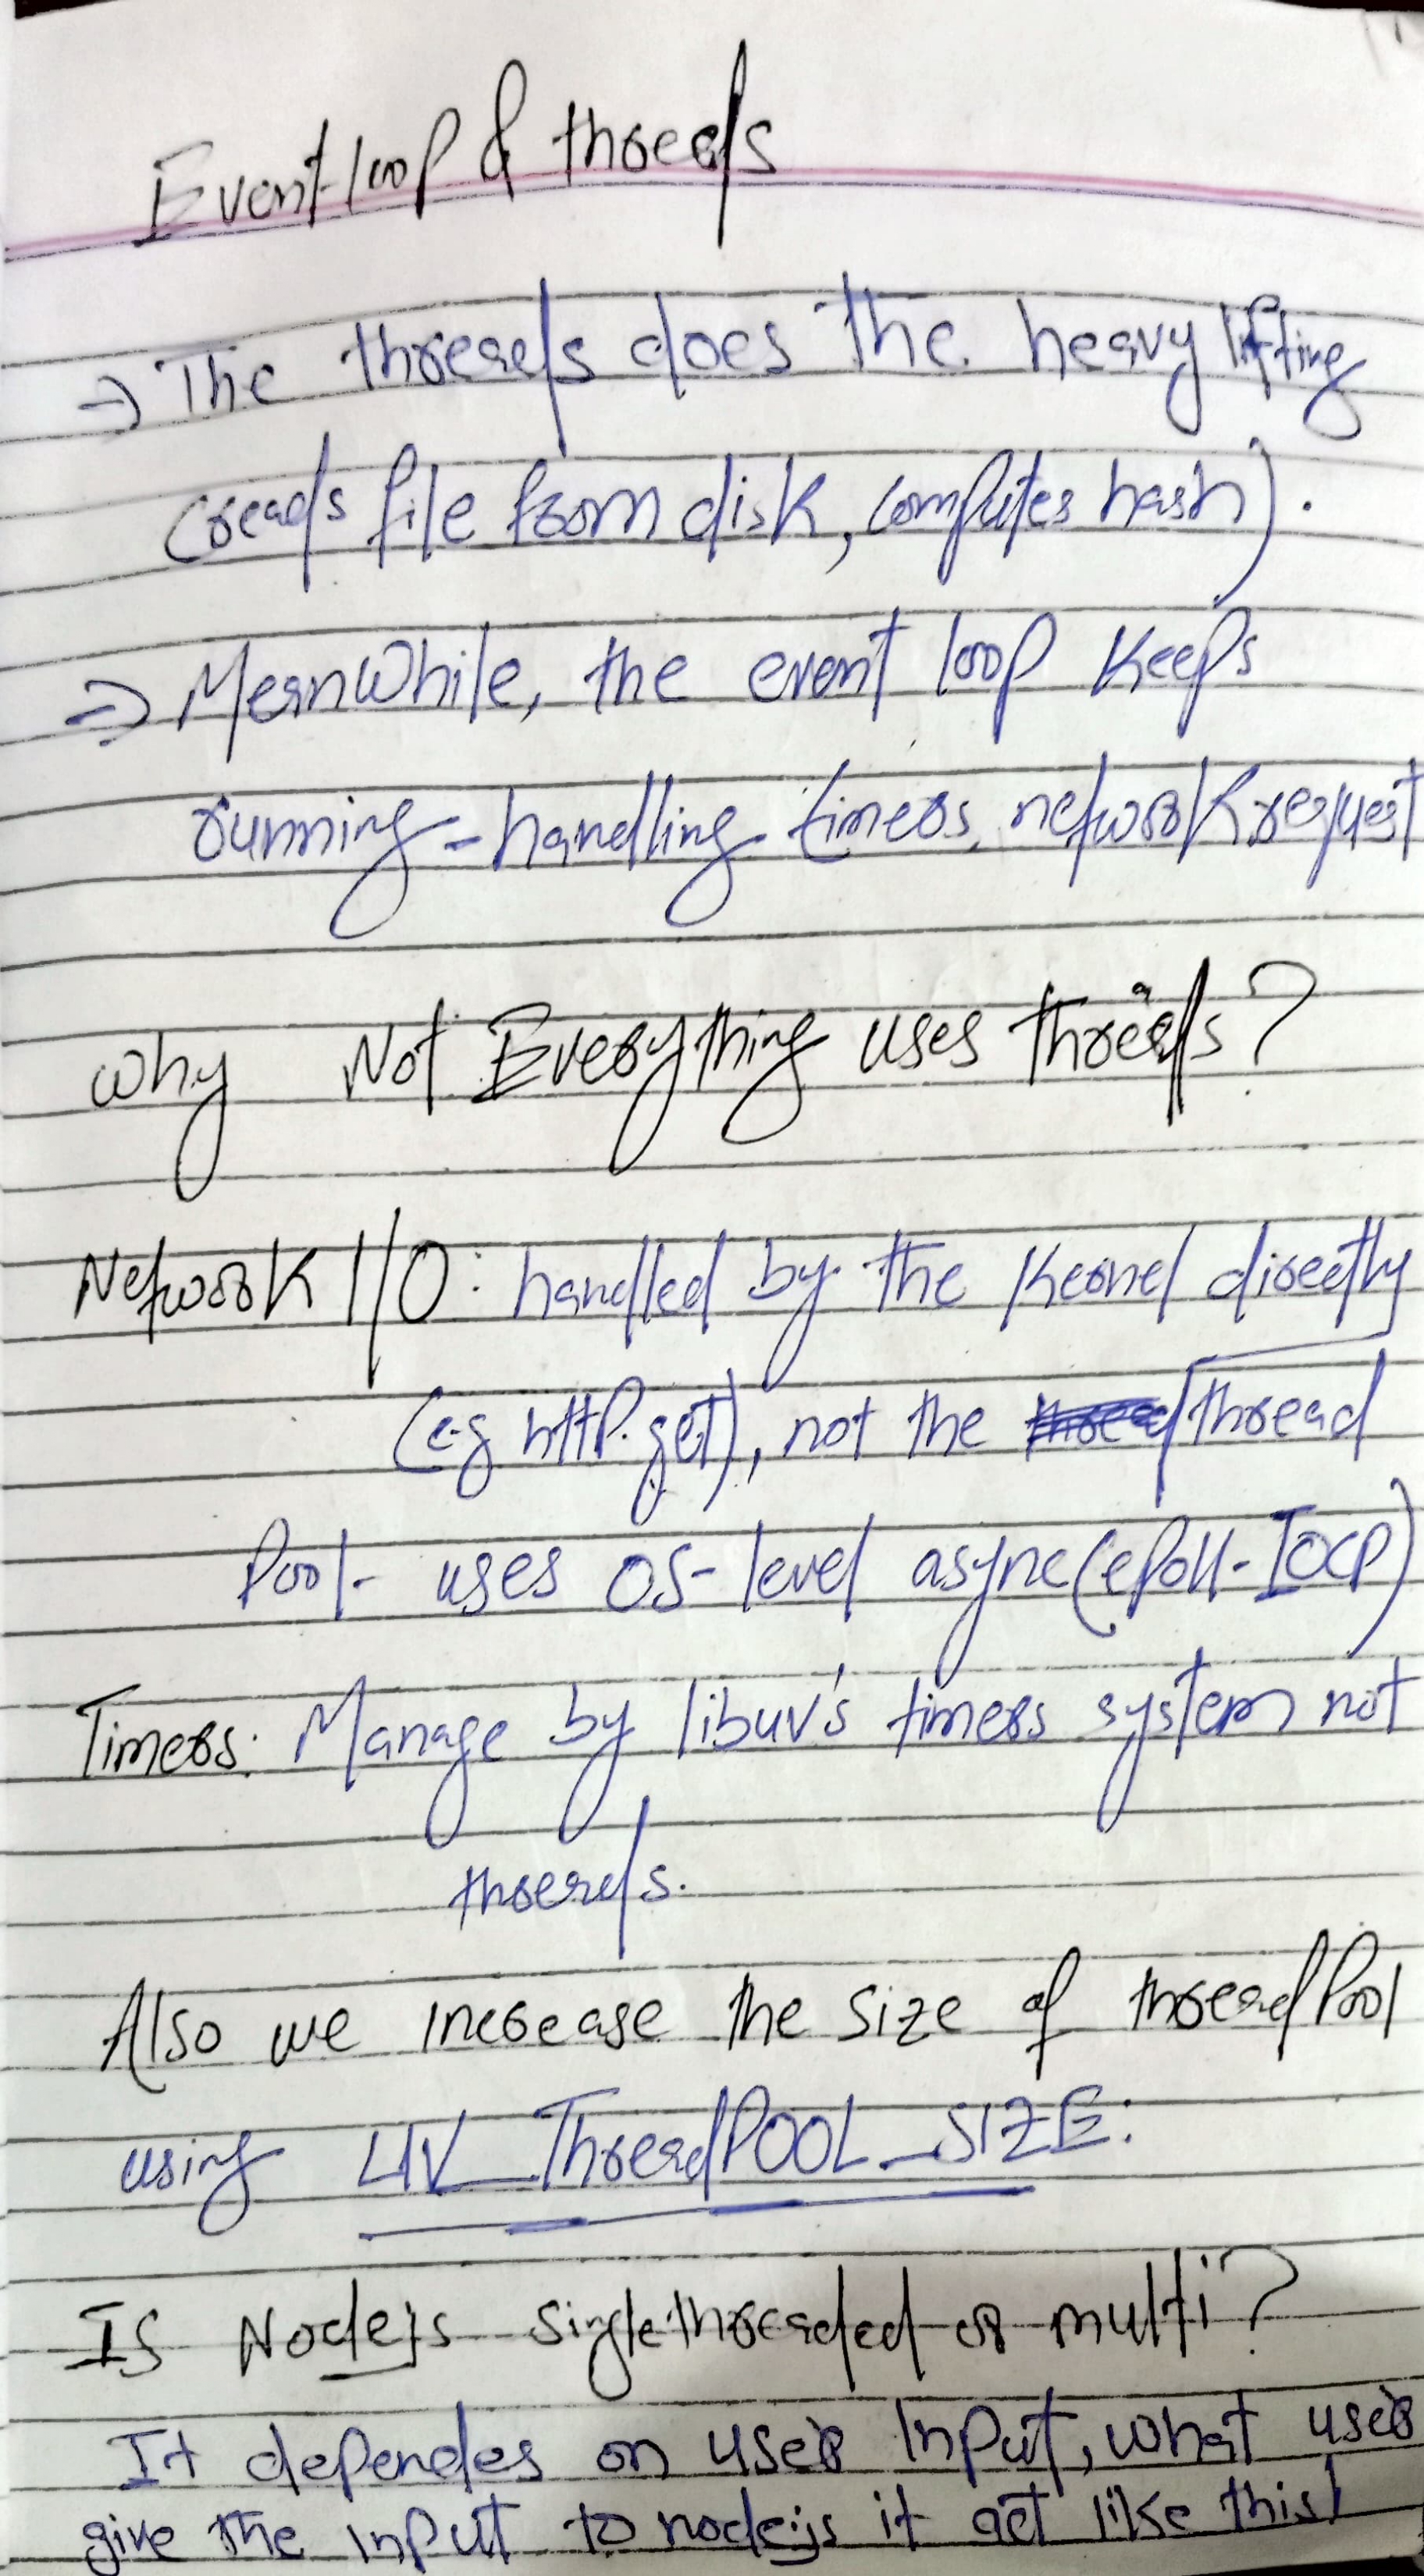 Event loop & threads
→ The threads does the heavy lifting
(reads file from disk, computes hash).
⇒ Meanwhile, the event loop keeps
running - handling timers, network request
Why Not Everything uses threads?
Network I/O: handled by the Kernel directly
(e.g http.get), not the thread
Pool - uses OS-level async (epoll-IOCP)
Timers: Manage by libuv's timers system not
threads.
Also we increase the size of threadPool
using UV_ThreadPOOL_SIZE:
Is Nodejs Single threaded or multi?
It dependes on user Input, what user
give the Input to nodejs it act like this!